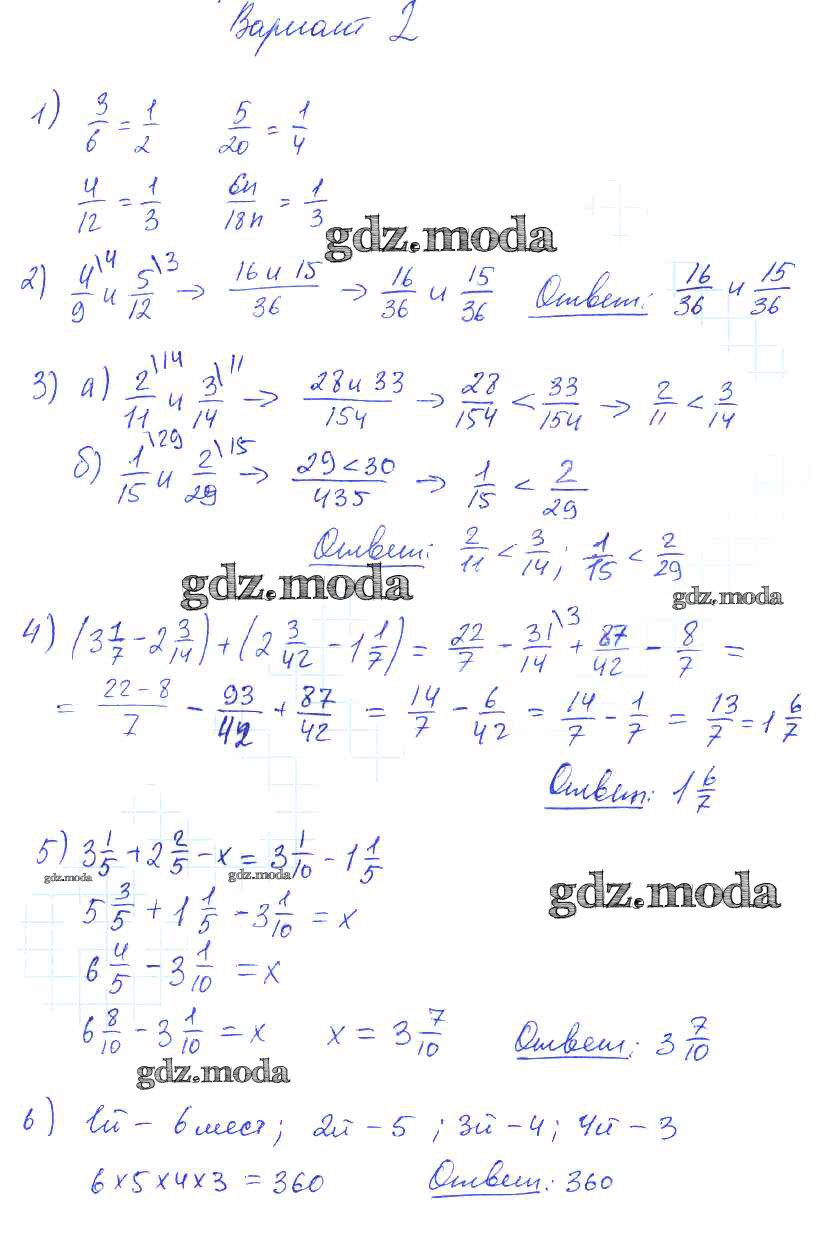 Вариант 2
1) 3/6 = 1/2 5/20 = 1/4
4/12 = 1/3 6n/18n = 1/3
gdz.moda
2) 4/9 \4 и 5/12 \3 → 16 и 15/36 → 16/36 и 15/36 Ответ: 16/36 и 15/36
3) а) 2/11 \14 и 3/14 \11 → 28 и 33/154 → 28/154 < 33/154 → 2/11 < 3/14
б) 1/15 \29 и 2/29 \15 → 29 < 30/435 → 1/15 < 2/29
Ответ: 2/11 < 3/14; 1/15 < 2/29
gdz.moda gdz.moda
4) (3 1/7 - 2 3/14) + (2 3/42 - 1 1/7) = 22/7 - 31/14 \3 + 87/42 - 8/7 =
= 22-8/7 - 93/42 + 87/42 = 14/7 - 6/42 = 14/7 - 1/7 = 13/7 = 1 6/7
Ответ: 1 6/7
5) 3 1/5 + 2 2/5 - x = 3 1/10 - 1 1/5
gdz.moda gdz.moda gdz.moda
5 3/5 + 1 1/5 - 3 1/10 = x
6 4/5 - 3 1/10 = x
6 8/10 - 3 1/10 = x x = 3 7/10 Ответ: 3 7/10
gdz.moda
6) 1й - 6 мест; 2й - 5; 3й - 4; 4й - 3
6 × 5 × 4 × 3 = 360 Ответ: 360